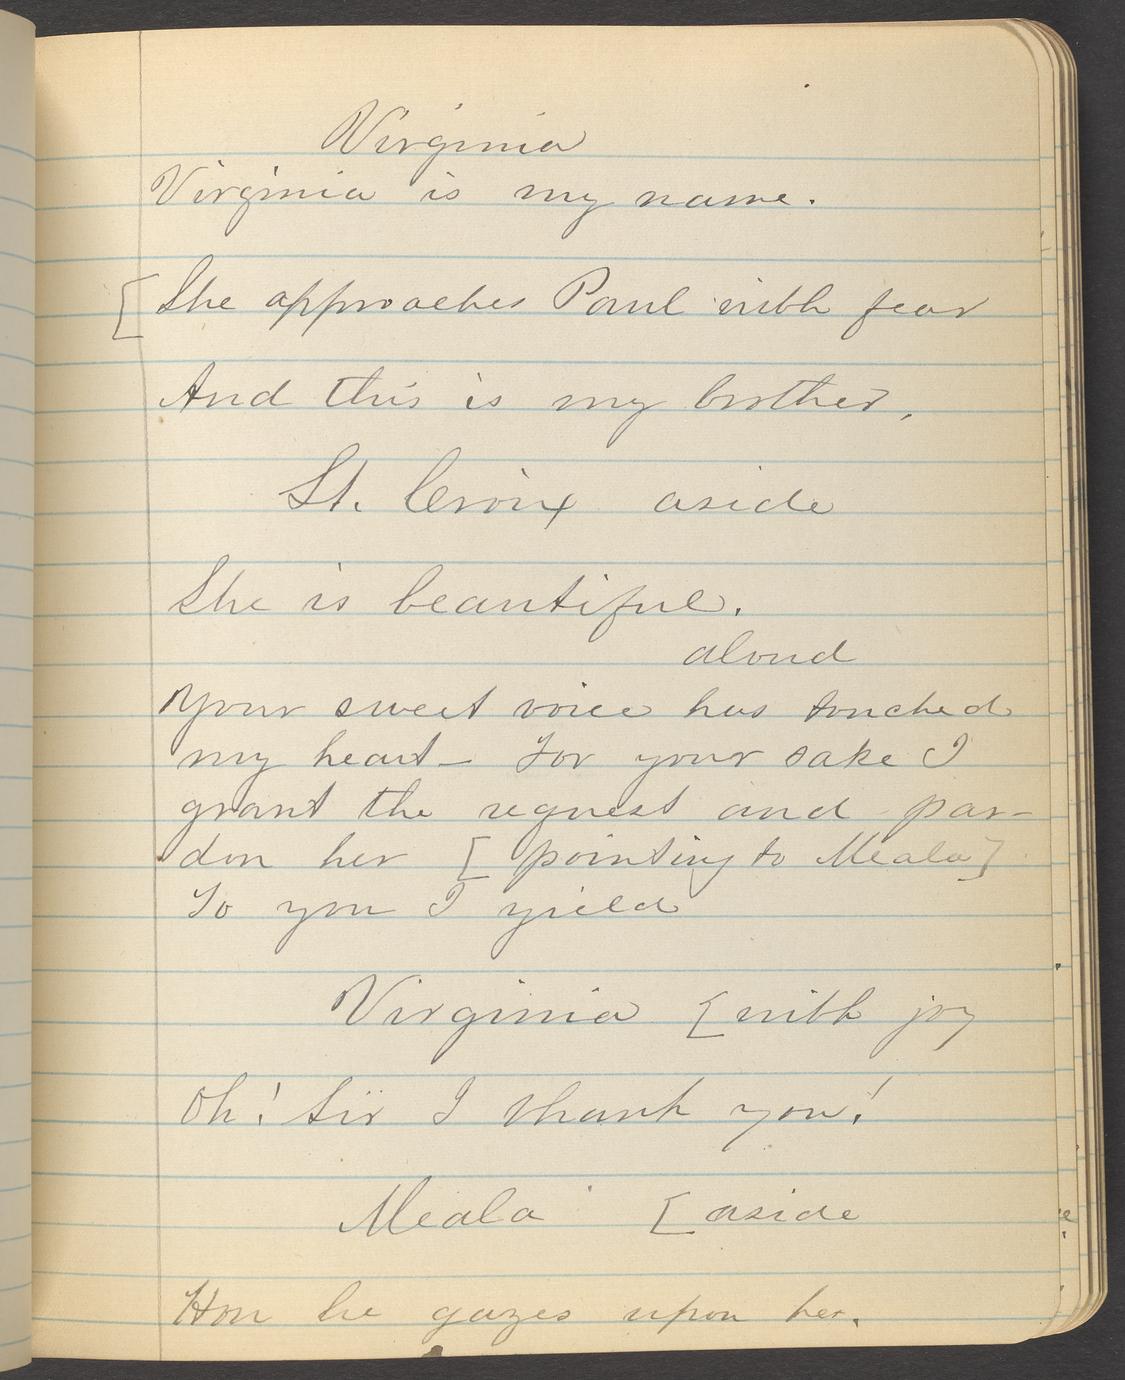 Virginia
Virginia is my name.
[She approaches Paul with fear
And this is my brother.
St. Croix aside
She is beautiful.
aloud
Your sweet voice has touched
my heart – For your sake I
grant the request and par-
don her [pointing to Meala]
To you I yield
Virginia [with joy
Oh! Sir I thank you!
Meala [aside
How he gazes upon her.